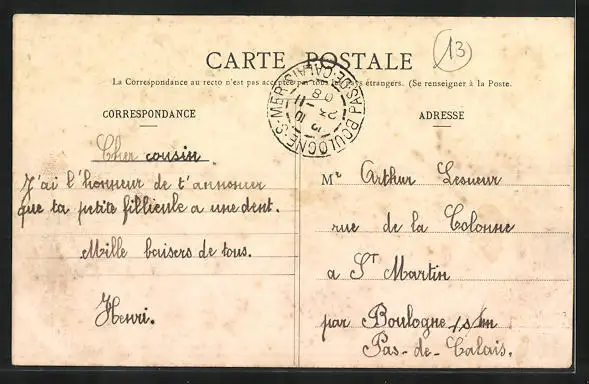 CARTE POSTALE
13
La Correspondance au recto n'est pas acceptée par tous les pays étrangers. (Se renseigner à la Poste.
CORRESPONDANCE
ADRESSE
BOULOGNE-S-MER
PAS-DE-CALAIS
Cher cousin.
J'ai l'honneur de t'annoncer
que ta petite fillieule a une dent.
Mille baisers de tous.
Henri.
Mr Arthur Lesueur
rue de la Colonne
a St Martin
par Boulogne s/m
Pas-de-Calais.